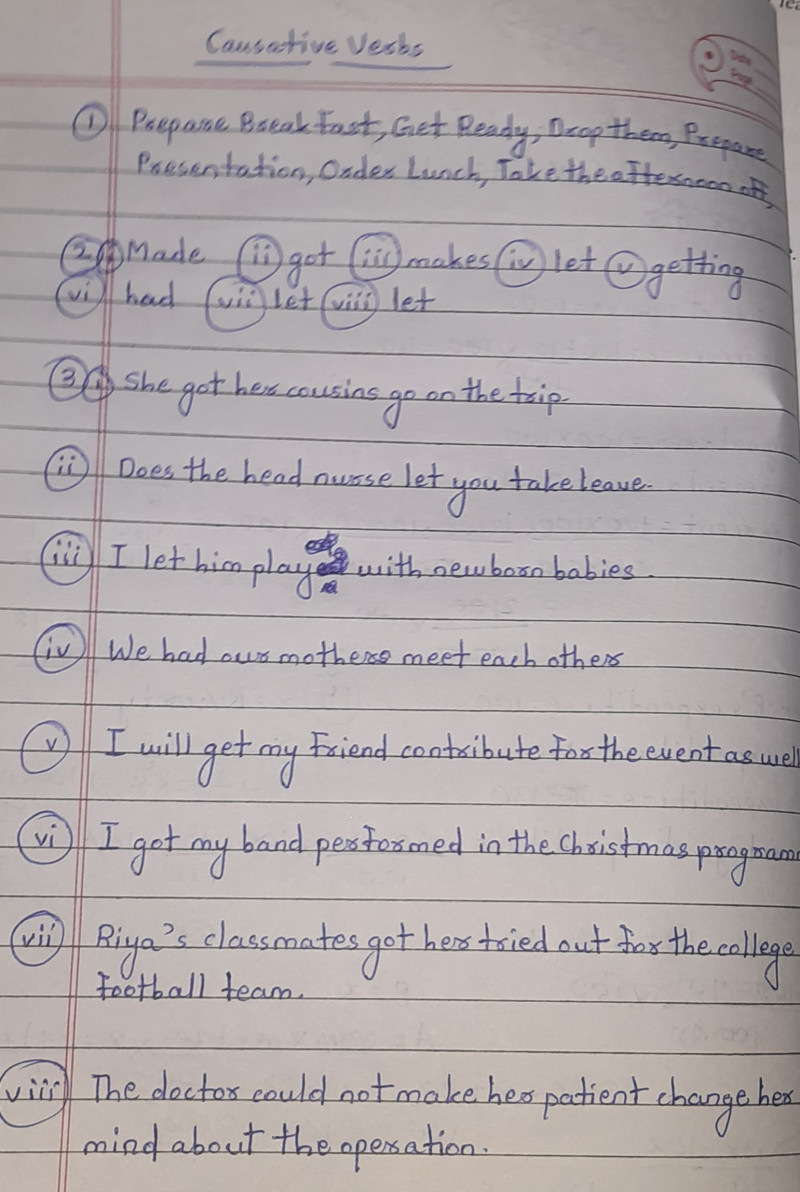 Causative Verbs
Date
Page
① Prepare Breakfast, Get Ready, Drop them, Prepare
Presentation, Order Lunch, Take the afternoon off,
② ⓘ Made ⓘⓘ got ⓘⓘⓘ makes ⓘⓥ let ⓥ getting
ⓥⓘ had ⓥⓘⓘ let ⓥⓘⓘⓘ let
③ ⓘ She got her cousins go on the trip.
ⓘⓘ Does the head nurse let you take leave.
ⓘⓘⓘ I let him play with newborn babies.
ⓘⓥ We had our mothers meet each others
ⓥ I will get my friend contribute for the event as well
ⓥⓘ I got my band performed in the Christmas program
ⓥⓘⓘ Riya's classmates got her tried out for the college
football team.
ⓥⓘⓘⓘ The doctor could not make her patient change her
mind about the operation.